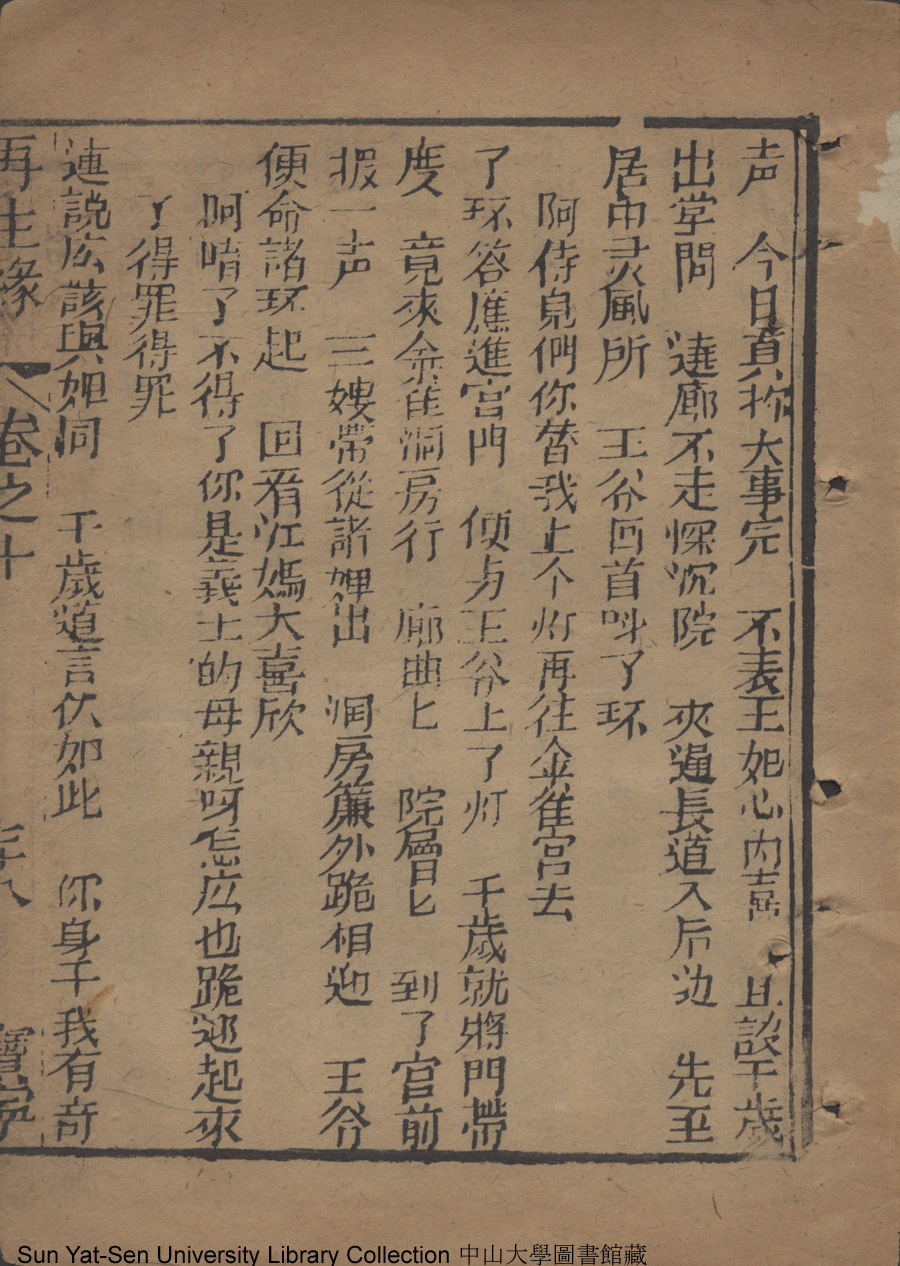 声　今日真称大事完　不表王妃心内喜　且談千歲
出堂問　遶廊不走深沉院　夾逼長道入后边　先至
居中灵風所　王爷回首叫了环
阿侍児們你替我上个灯再往金雀宫去
了环答應進宫門　便与王爷上了灯　千歲就將門帶
度　竟來金雀洞房行　廊曲匕　院層匕　到了宫前
报一声　三嫂帶從諸婢出　洞房簾外跪相迎　王爷
便命諸环起　回看江媽大喜欣
呵唷了不得了你是義士的母親呀怎広也跪迎起來
了得罪得罪
連説広該與妲同　千歲道言伏如此　你身于我有奇
再生緣　卷之十　三十八　寶寧
Sun Yat-Sen University Library Collection 中山大學圖書館藏